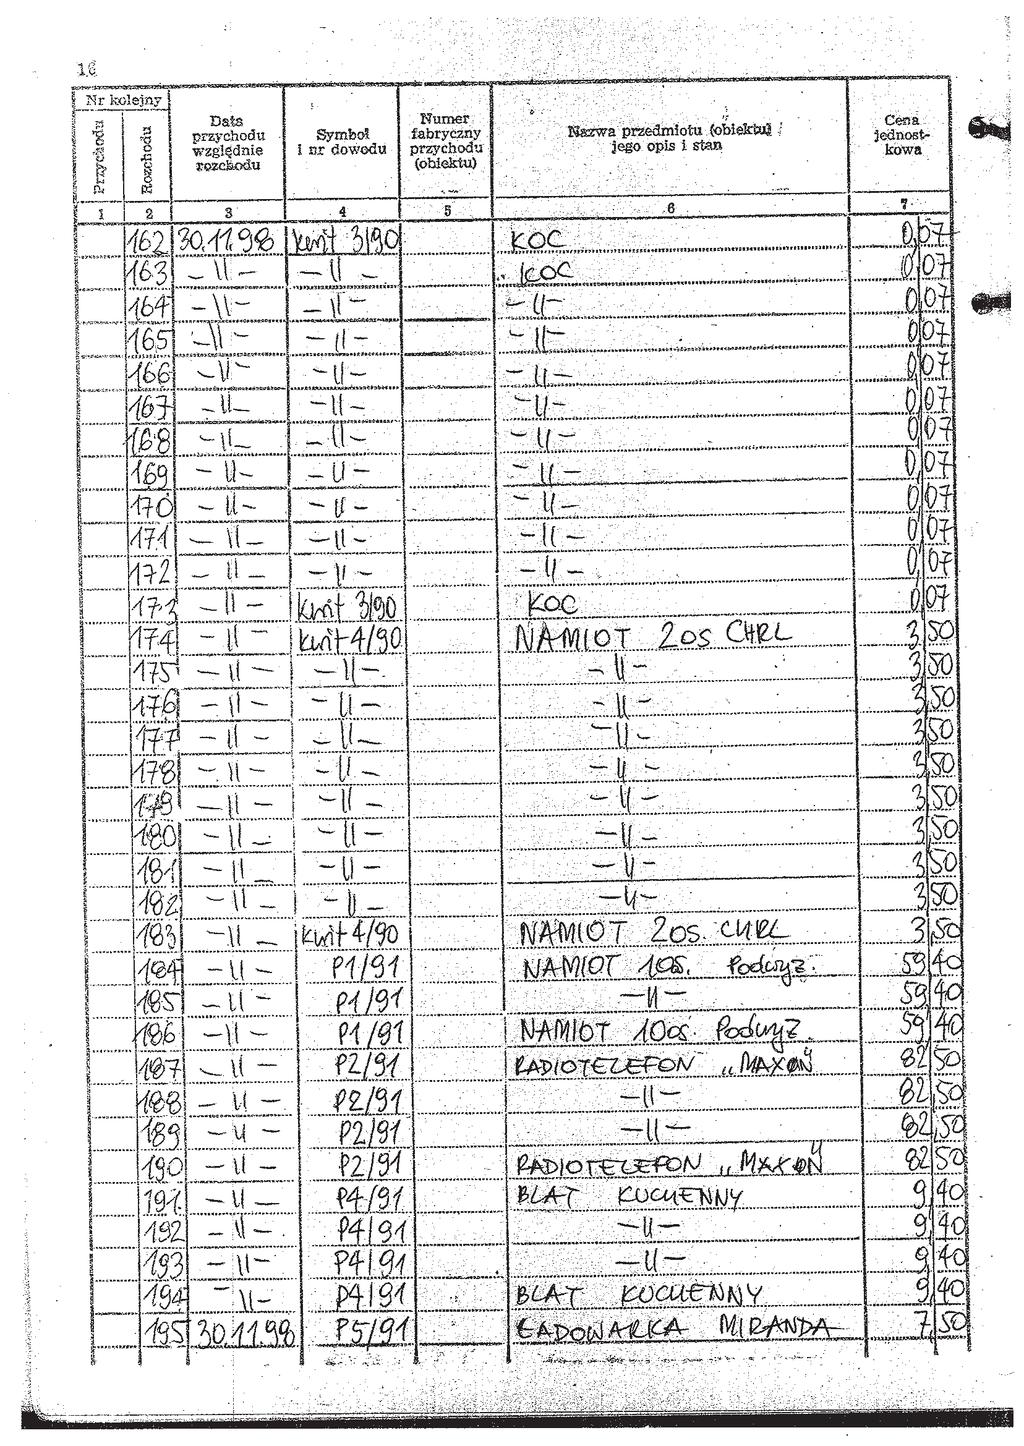 16
Nr kolejny
Przychodu
Rozchodu
Data przychodu względnie rozchodu
Symbol i nr dowodu
Numer fabryczny przychodu (obiektu)
Nazwa przedmiotu (obiektu) jego opis i stan
Cena jednostkowa
1 2 3 4 5 6 7
162 30.11.98 kwit 3/90 KOC 0,07
163 -II- -II- KOC 0,07
164 -II- -II- -II- 0,07
165 -II- -II- -II- 0,07
166 -II- -II- -II- 0,07
167 -II- -II- -II- 0,07
168 -II- -II- -II- 0,07
169 -II- -II- -II- 0,07
170 -II- -II- -II- 0,07
171 -II- -II- -II- 0,07
172 -II- -II- -II- 0,07
173 -II- kwit 3/90 KOC 0,07
174 -II- kwit 4/90 NAMIOT 2os CHRL 3,50
175 -II- -II- -II- 3,50
176 -II- -II- -II- 3,50
177 -II- -II- -II- 3,50
178 -II- -II- -II- 3,50
179 -II- -II- -II- 3,50
180 -II- -II- -II- 3,50
181 -II- -II- -II- 3,50
182 -II- -II- -II- 3,50
183 -II- kwit 4/90 NAMIOT 2os. CHRL 3,50
184 -II- P1/91 NAMIOT 10s. Podwyż. 59,40
185 -II- P1/91 -II- 59,40
186 -II- P1/91 NAMIOT 10os. Podwyż. 59,40
187 -II- P2/91 RADIOTELEFON „MAXON" 82,50
188 -II- P2/91 -II- 82,50
189 -II- P2/91 -II- 82,50
190 -II- P2/91 RADIOTELEFON „MAXON" 82,50
191. -II- P4/91 BLAT KUCHENNY 9,40
192 -II- P4/91 -II- 9,40
193 -II- P4/91 -II- 9,40
194 -II- P4/91 BLAT KUCHENNY 9,40
195 30.11.98 P5/91 ŁADOWARKA MIRANDA 7,50